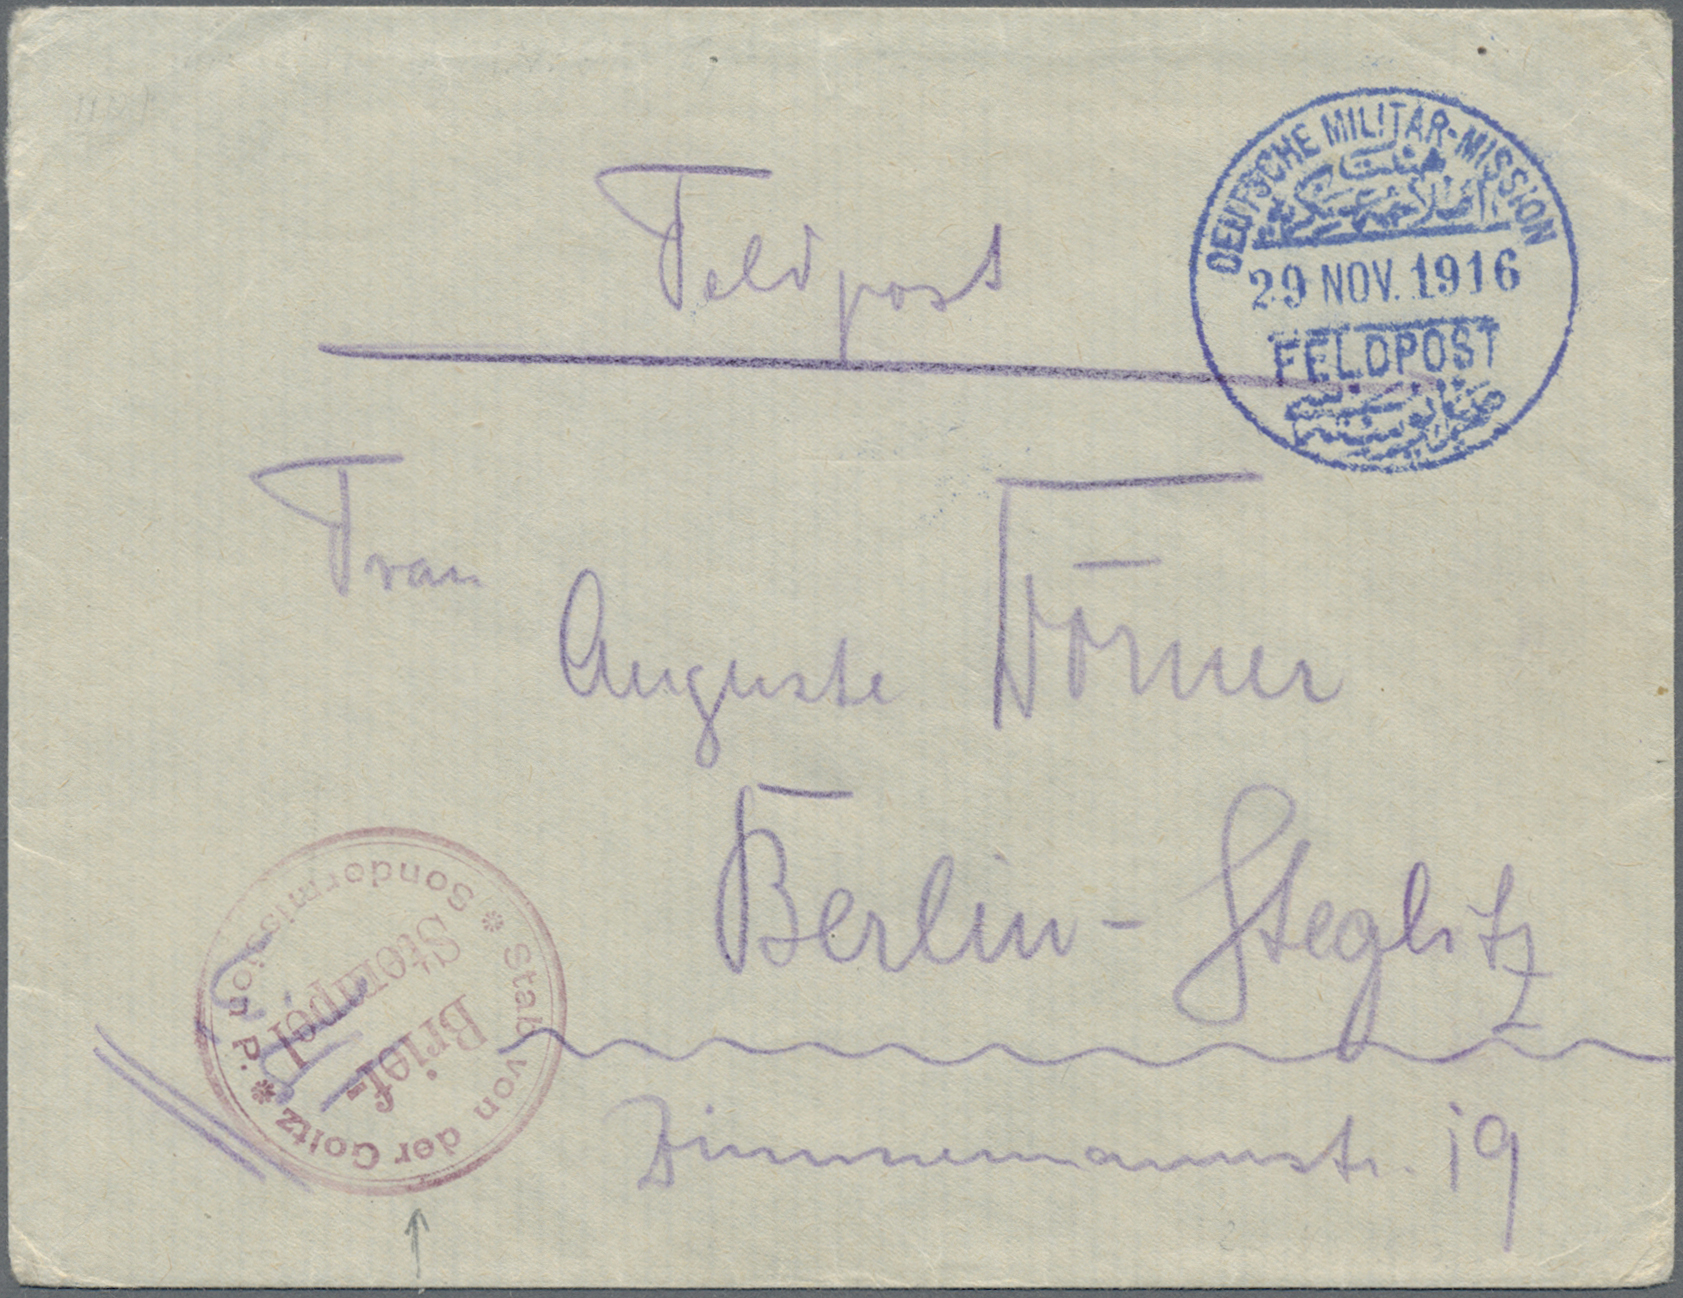 DEUTSCHE MILITÄR-MISSION
29 NOV. 1916
FELDPOST
Feldpost
Frau
Auguste Dörner
Berlin-Steglitz
Zimmermannstr. 19
* Sondermission P. * Stab von der Goltz
Brief-
Stempel